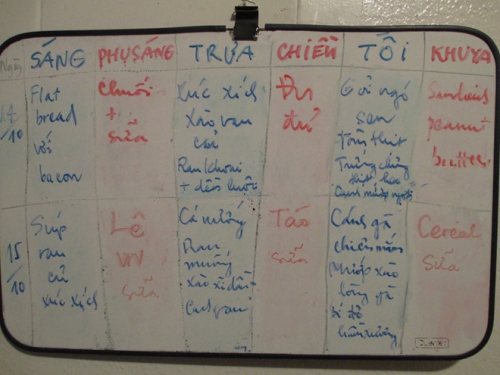 Ngày SÁNG PHỤ SÁNG TRƯA CHIỀU TỐI KHUYA
14/10
Flat
bread
với
bacon
Chuối
+
sữa
Xúc xích
Xào rau
cải
Rau khoai
+ dền luộc
Đu
đủ
Gỏi ngó
sen
tôm thịt
Trứng chưng
thịt heo
Sandwich
peanut
butter
15/10
Súp
rau
củ
xúc xích
Lê
sữa
Cá nướng
Rau
muống
xào
Táo
sữa
Cánh gà
chiên mắm
Mướp xào
lòng gà
Bí đỏ
hầm xương
Cereal
Sữa